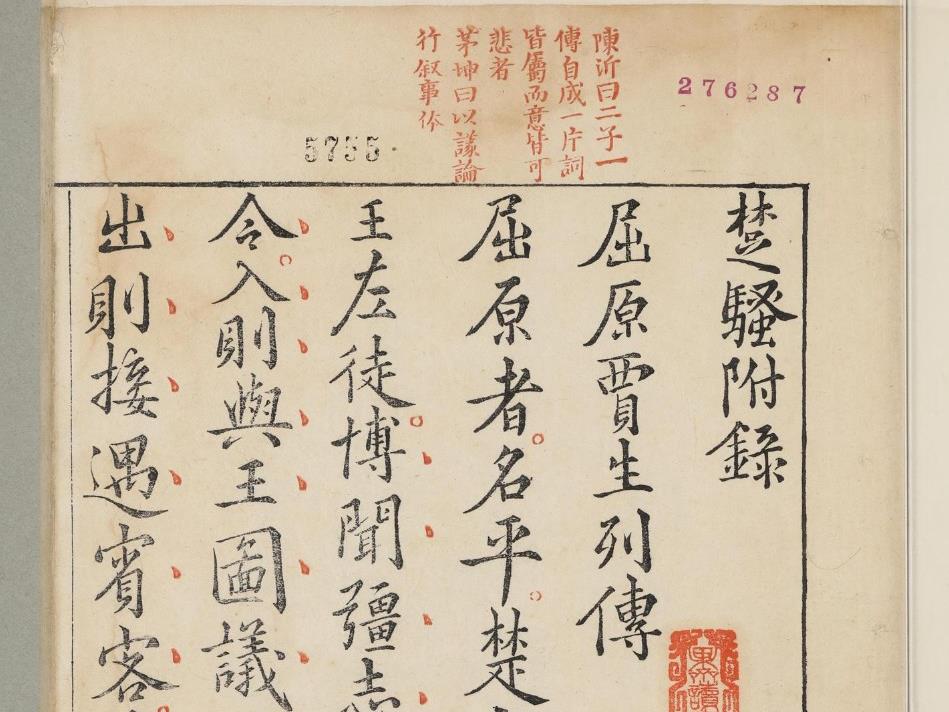 276287
陳沂曰二子一
傳自成一片詞
皆屬而意皆可
悲者
茅坤曰以議論
行叙事体
5755
楚騷附錄
屈原賈生列傳
屈原者名平楚
王左徒博聞彊志
令入則與王圖議
出則接遇賓客